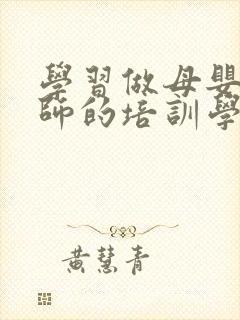 學習做母嬰
師的培訓學
黃慧青